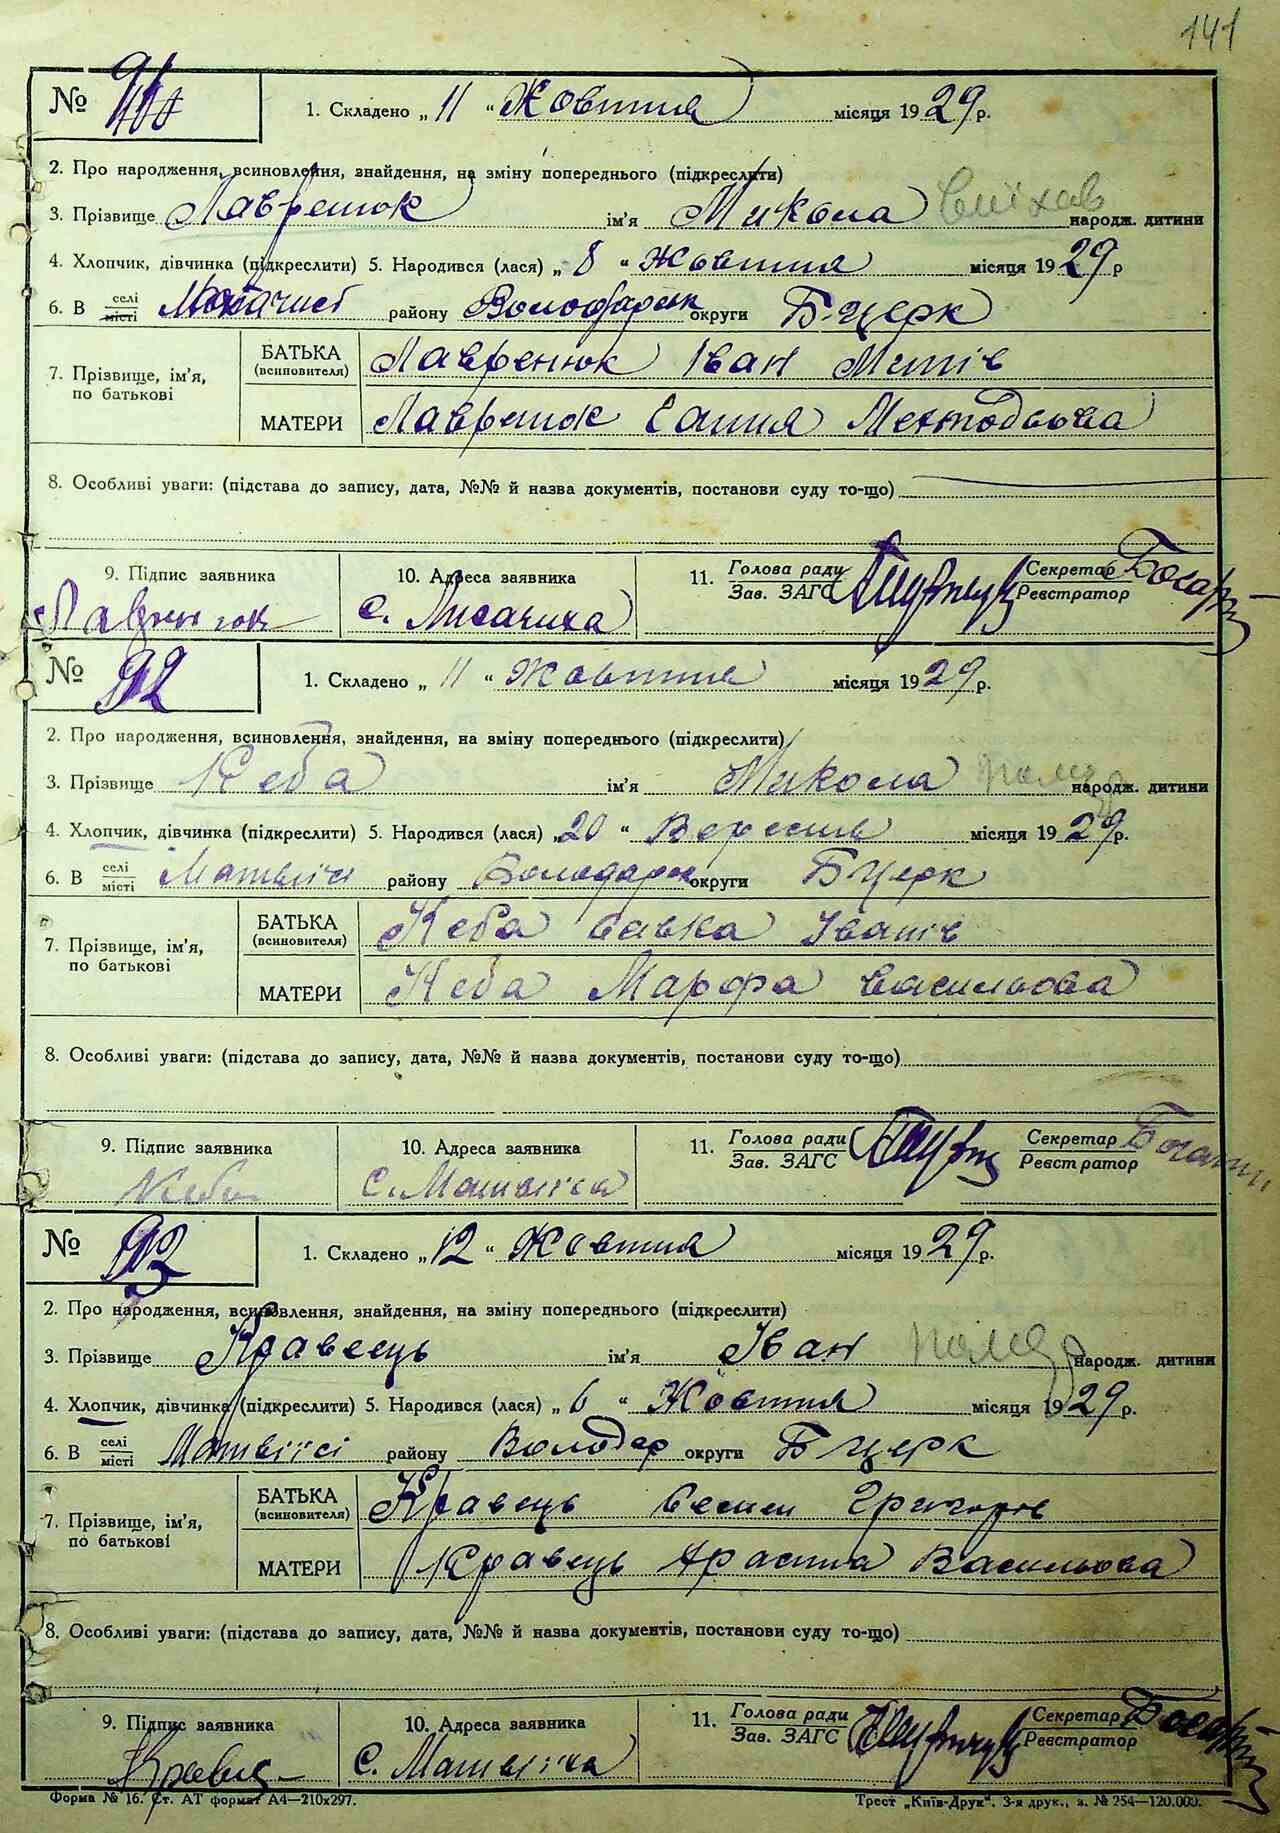 141
№ 91 1. Складено „ 11 “ Жовтня місяця 1929 р.
2. Про народження, всиновлення, знайдення, на зміну попереднього (підкреслити)
3. Прізвище Лавренюк ім'я Микола виїхав народж. дитини
4. Хлопчик, дівчинка (підкреслити) 5. Народився (лася) „ 8 “ Жовтня місяця 1929 р
6. В селі/місті району Володарськ округи Б-церк
7. Прізвище, ім'я, по батькові
БАТЬКА (всиновителя) Лавренюк Іван
МАТЕРИ Лавренюк Методьова
8. Особливі уваги: (підстава до запису, дата, №№ й назва документів, постанови суду то-що)
9. Підпис заявника 10. Адреса заявника 11. Голова ради/Зав. ЗАГС Секретар/Реєстратор
Лавренюк с. Лисачиха
№ 92 1. Складено „ 11 “ Жовтня місяця 1929 р.
2. Про народження, всиновлення, знайдення, на зміну попереднього (підкреслити)
3. Прізвище Кеба ім'я Микола помер народж. дитини
4. Хлопчик, дівчинка (підкреслити) 5. Народився (лася) „ 20 “ Вересня місяця 1929 р.
6. В селі/місті Матвіїсі району Володарськ округи Бцерк
7. Прізвище, ім'я, по батькові
БАТЬКА (всиновителя) Кеба Савка Іванів
МАТЕРИ Кеба Марфа Васильова
8. Особливі уваги: (підстава до запису, дата, №№ й назва документів, постанови суду то-що)
9. Підпис заявника 10. Адреса заявника 11. Голова ради/Зав. ЗАГС Секретар/Реєстратор
Кеба с. Матвіїха
№ 93 1. Складено „ 12 “ Жовтня місяця 1929 р.
2. Про народження, всиновлення, знайдення, на зміну попереднього (підкреслити)
3. Прізвище Кравець ім'я Іван помер народж. дитини
4. Хлопчик, дівчинка (підкреслити) 5. Народився (лася) „ 6 “ Жовтня місяця 1929 р.
6. В селі/місті Матвіїсі району Володар округи Бцерк
7. Прізвище, ім'я, по батькові
БАТЬКА (всиновителя) Кравець Семен Григоров
МАТЕРИ Кравець Васильова
8. Особливі уваги: (підстава до запису, дата, №№ й назва документів, постанови суду то-що)
9. Підпис заявника 10. Адреса заявника 11. Голова ради/Зав. ЗАГС Секретар/Реєстратор
Кравец с. Матвіїха
Форма № 16. Ст. АТ формат А4—210х297. Трест „Київ-Друк“. 3-я друк., з. № 254—120.000.